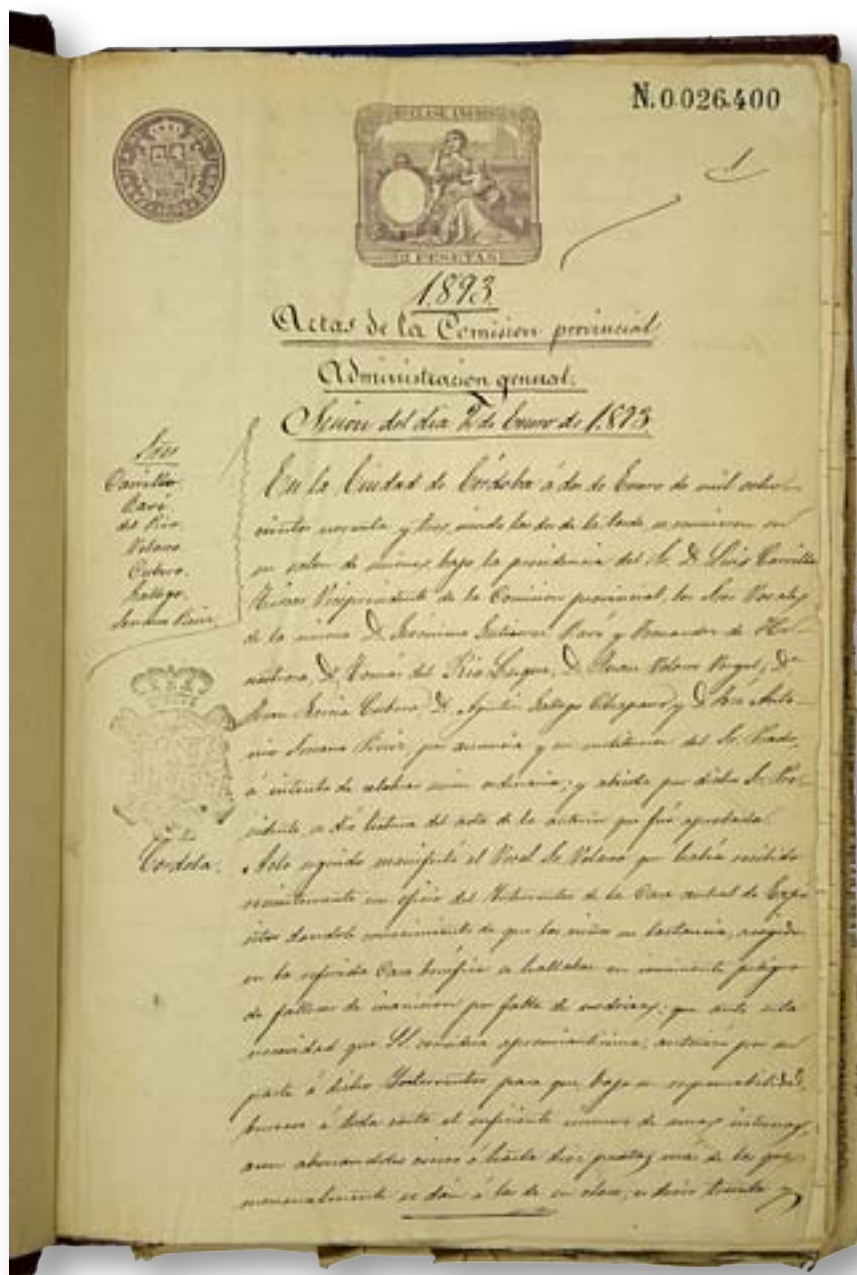 N.0.026.400
1
2 PESETAS
1893
Actas de la Comision provincial
Administracion general.
Sesion del dia 2 de Enero de 1893
Sres
Carrillo
Pavé
del Rio
Velasco
Cubero.
Gallego.
Serrano
En la Ciudad de Córdoba á dos de Enero de mil ocho-
cientos noventa y tres, siendo las dos de la tarde, se reunieron en
su salon de sesiones bajo la presidencia del Sr. D. Luis Carrillo
Vicepresidente de la Comision provincial, los Sres Vocales
de la misma D. Jerónimo Gutierrez Pavé y Fernandez de
D. Tomás del Rio Luque, D. Juan Velasco D.
Juan Cubero, D. Agustin Gallego Chaparro y D. José Anto-
nio Serrano por ausencia y en sustitucion del Sr.
á intento de celebrar sesion ordinaria; y abierta por dicho Sr. Pre-
sidente, se dió lectura del acta de la anterior que fué aprobada.
Córdoba.
Acto seguido manifestó el Vocal Sr. Velasco que habia recibido
recientemente un oficio del Interventor de la Casa central de Expó-
sitos dandole conocimiento de que los niños en lactancia, acogidos
en la referida Casa benéfica se hallaban en inminente peligro
de fallecer de inanicion por falta de nodrizas; que ante esta
necesidad que S.S. considera apremiantísima, autorizó por su
parte á dicho Interventor para que bajo su responsabilidad,
buscase á toda costa el suficiente número de amas internas,
aun abonandoles cinco ó hasta diez pesetas más de las que
mensualmente se dán á las de su clase, es decir treinta y